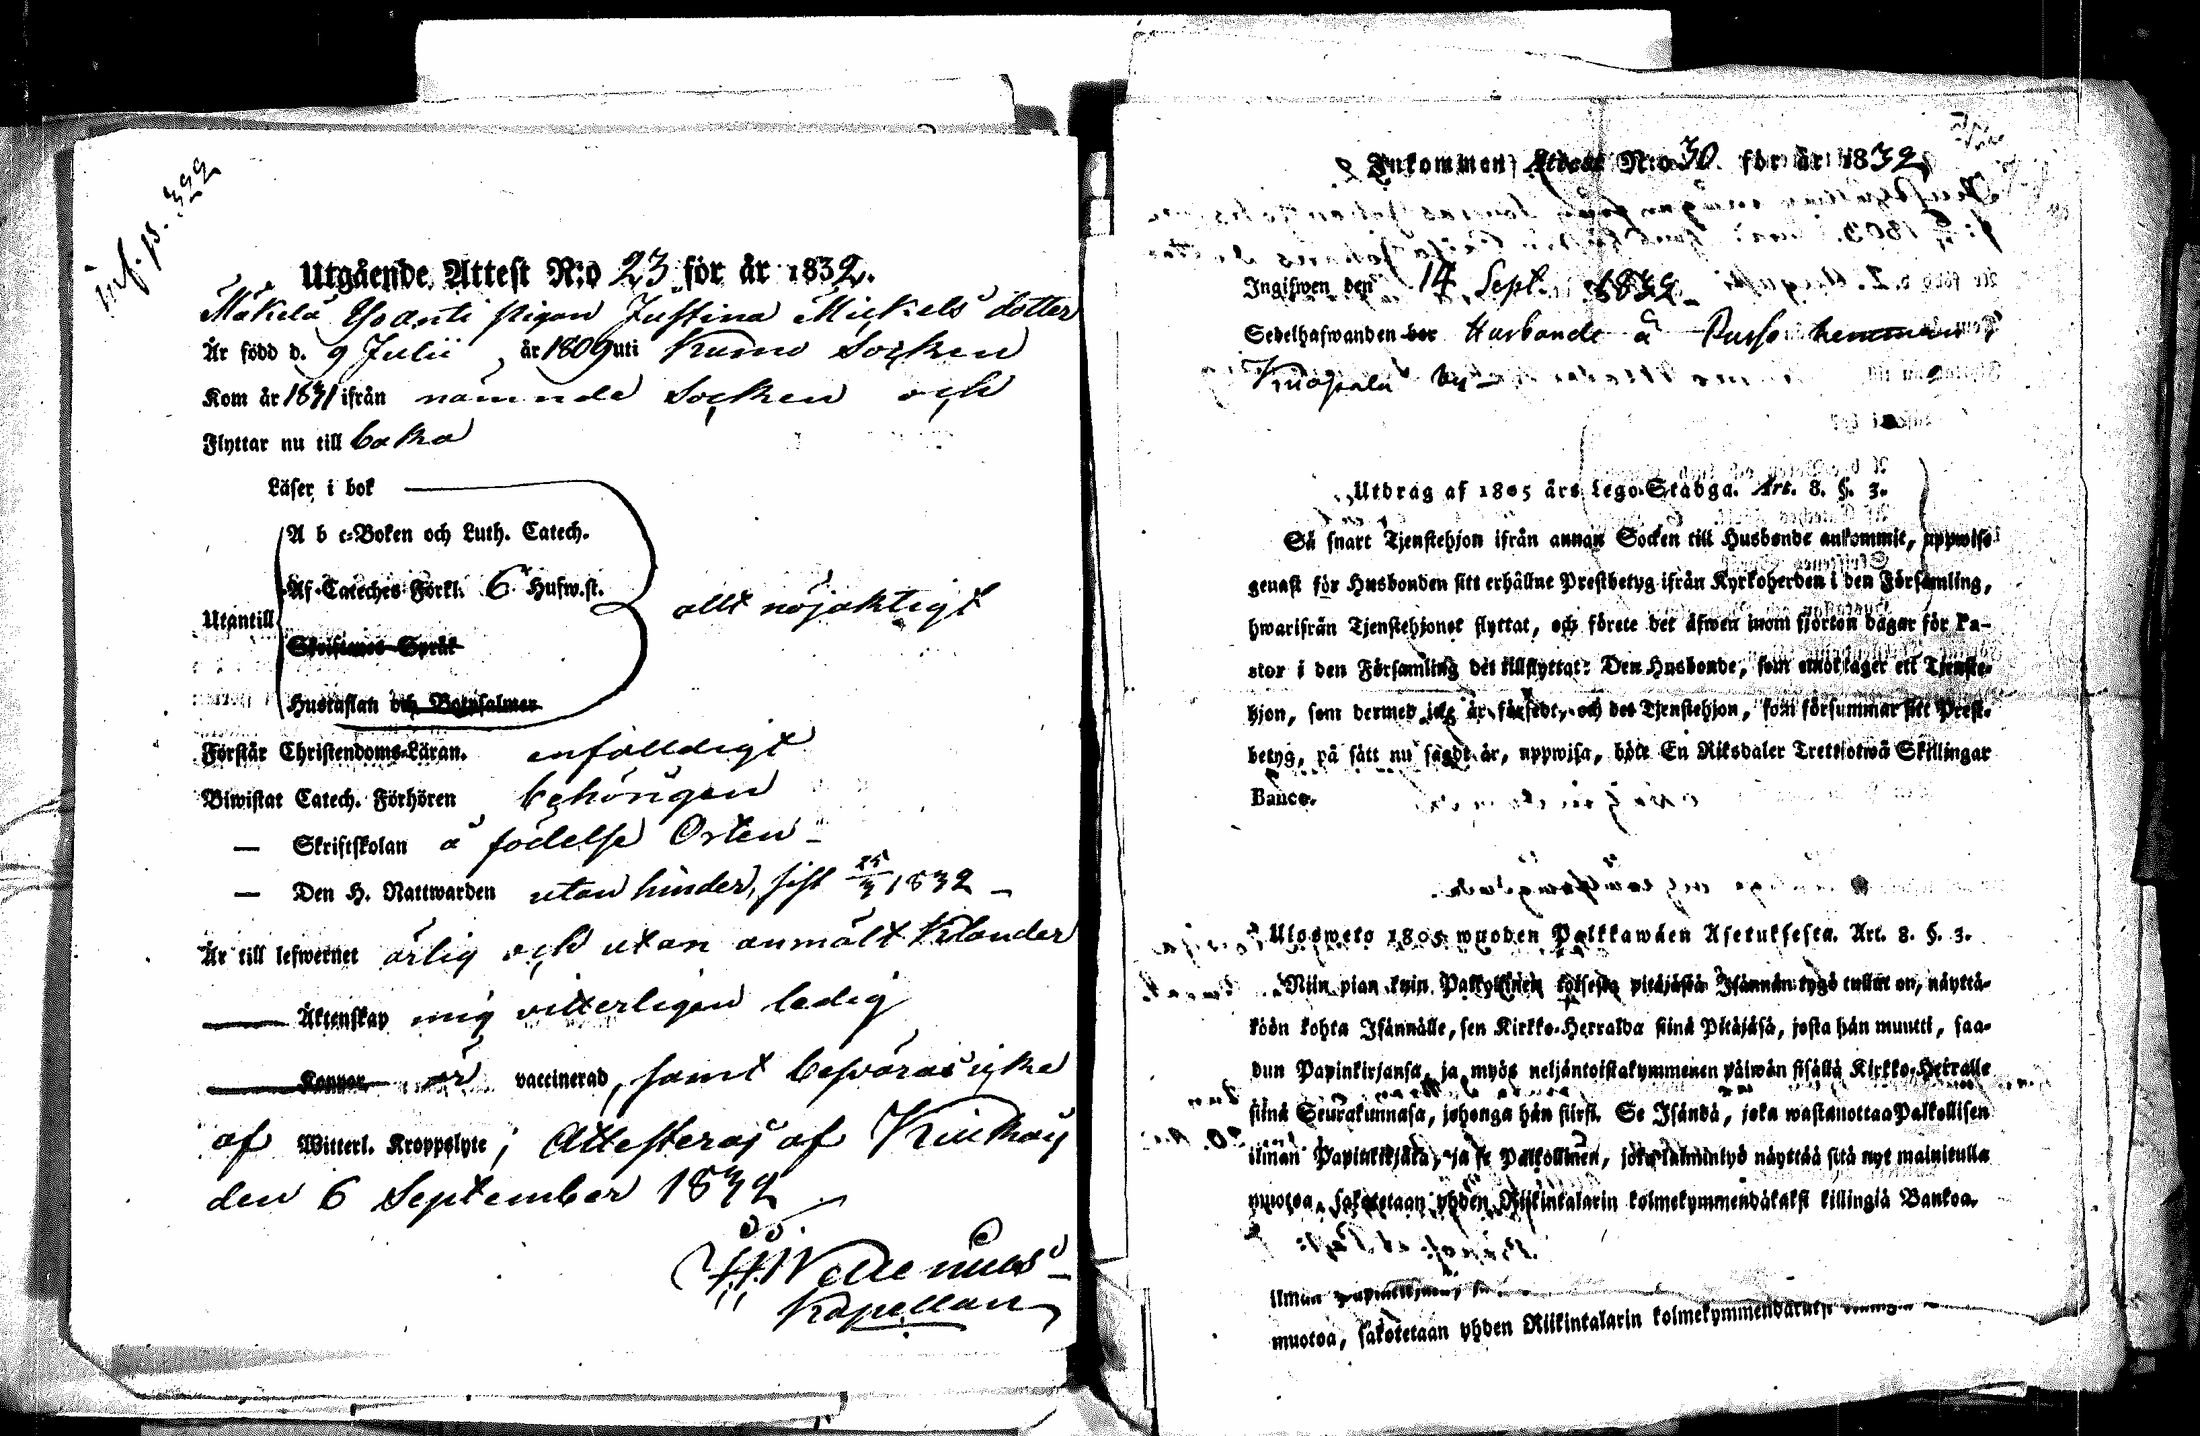 inf. p. 322
Utgående Attest N:o 23 för år 1832.
Mäkelä Yoanti pigan Justina Mickels dotter
Är född d. 9 Julii år 1809 uti Kumo Socken
Kom år 1831 ifrån nämnde Socken och
Flyttar nu till baka
Läser i bok
A b c-Boken och Luth. Catech.
Af Cateches Förkl. 6 Hufw.st.
allt nöjaktigt
Utantill
Skriftenes Språk
Hustaflan och Botpsalmer
Förstår Christendoms-Läran. enfalldigt
Biwistat Catech. Förhören behörigen
— Skriftskolan å födelse Orten
— Den H. Nattwarden utan hinder, sist 25/3 1832
Är till lefwernet ärlig och utan anmält Klander
Äktenskap mig vitterligen ledig
Koppor är vaccinerad, samt besväras icke
af Witterl. Kroppslyte; Attesteras af Kiukais
den 6 September 1832
Kapellan
Inkommen Attest N:o 30 för år 1832
Ingifwen den 14 Sept. 1832
Sedelhafwanden bor Husbonde å Purso hemman i
by
Utdrag af 1805 års Lego-Stadga. Art. 8. §. 3.
Så snart Tjenstehjon ifrån annan Socken till Husbonde ankommit, uppwise
genast för Husbonden sitt erhållne Prestbetyg ifrån Kyrkoherden i den Församling,
hwarifrån Tjenstehjonet flyttat, och förete det äfwen inom fjorton dagar för Pa-
stor i den Församling det tillflyttat: Den Husbonde, som emottager ett Tjenste-
hjon, som dermed icke är försedt, och det Tjenstehjon, som försummar sitt Prest-
betyg, på sätt nu sagdt är, uppwisa, böte En Riksdaler Trettiotwå Skillingar
Banco.
Ulosweto 1805 wuoden Palkkawäen Asetuksesta. Art. 8. §. 3.
Niin pian kuin Palkollinen toisesta pitäjästä Isännän tygö tullut on, näyttä-
köön kohta Isännälle, sen Kirkko-Herralda siinä Pitäjäsä, josta hän muutti, saa-
dun Papinkirjansa, ja myös neljäntoistakymmenen päiwän sisällä Kirkko-Herralle
siinä Seurakunnasa, johonga hän siirsi. Se Isändä, joka wastanottaa Palkollisen
ilman Papinkirjata, ja se Palkollinen, joka laiminlyö näyttää sitä nyt mainitulla
muotoa, sakotetaan yhden Riikintalarin kolmekymmendäkaksi killingiä Bankoa.
ilman
muotoa, sakotetaan yhden Riikintalarin